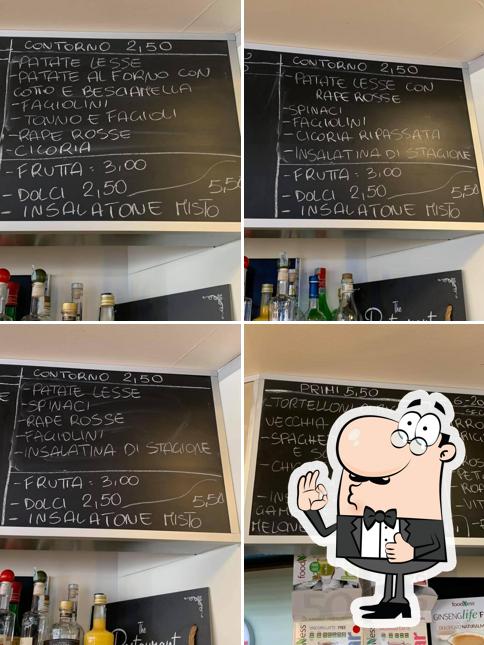 CONTORNO 2,50
-PATATE LESSE
-PATATE AL FORNO CON
COTTO E BESCIAMELLA
-FAGIOLINI
-TONNO E FAGIOLI
-RAPE ROSSE
-CICORIA
-FRUTTA: 3,00
-DOLCI 2,50 5,50
-INSALATONE MISTO
CONTORNO 2,50
-PATATE LESSE CON
RAPE ROSSE
-SPINACI
-FAGIOLINI
-CICORIA RIPASSATA
-INSALATINA DI STAGIONE
-FRUTTA: 3,00
-DOLCI 2,50 5,50
-INSALATONE MISTO
The
Restaurant
CONTORNO 2,50
-PATATE LESSE
-SPINACI
-RAPE ROSSE
-FAGIOLINI
-INSALATINA DI STAGIONE
-FRUTTA: 3,00
-DOLCI 2,50 5,50
-INSALATONE MISTO
The
Restaurant
PRIMI 5,50
-TORTELLONI
VECCHIA
-SPAGHE
E S
-CH
-IN
GAM
MELONE
foodNess
GINSENG life